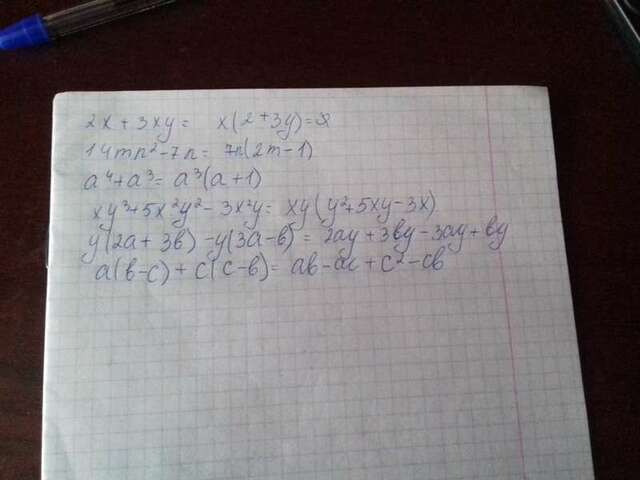 2x + 3xy = x(2+3y)=
14mn²-7n= 7n(2m-1)
a⁴+a³= a³(a+1)
xy³+5x²y²-3x²y= xy(y²+5xy-3x)
y(2a+3b)-y(3a-b)= 2ay+3by-3ay+by
a(b-c)+c(c-b)= ab-ac+c²-cb